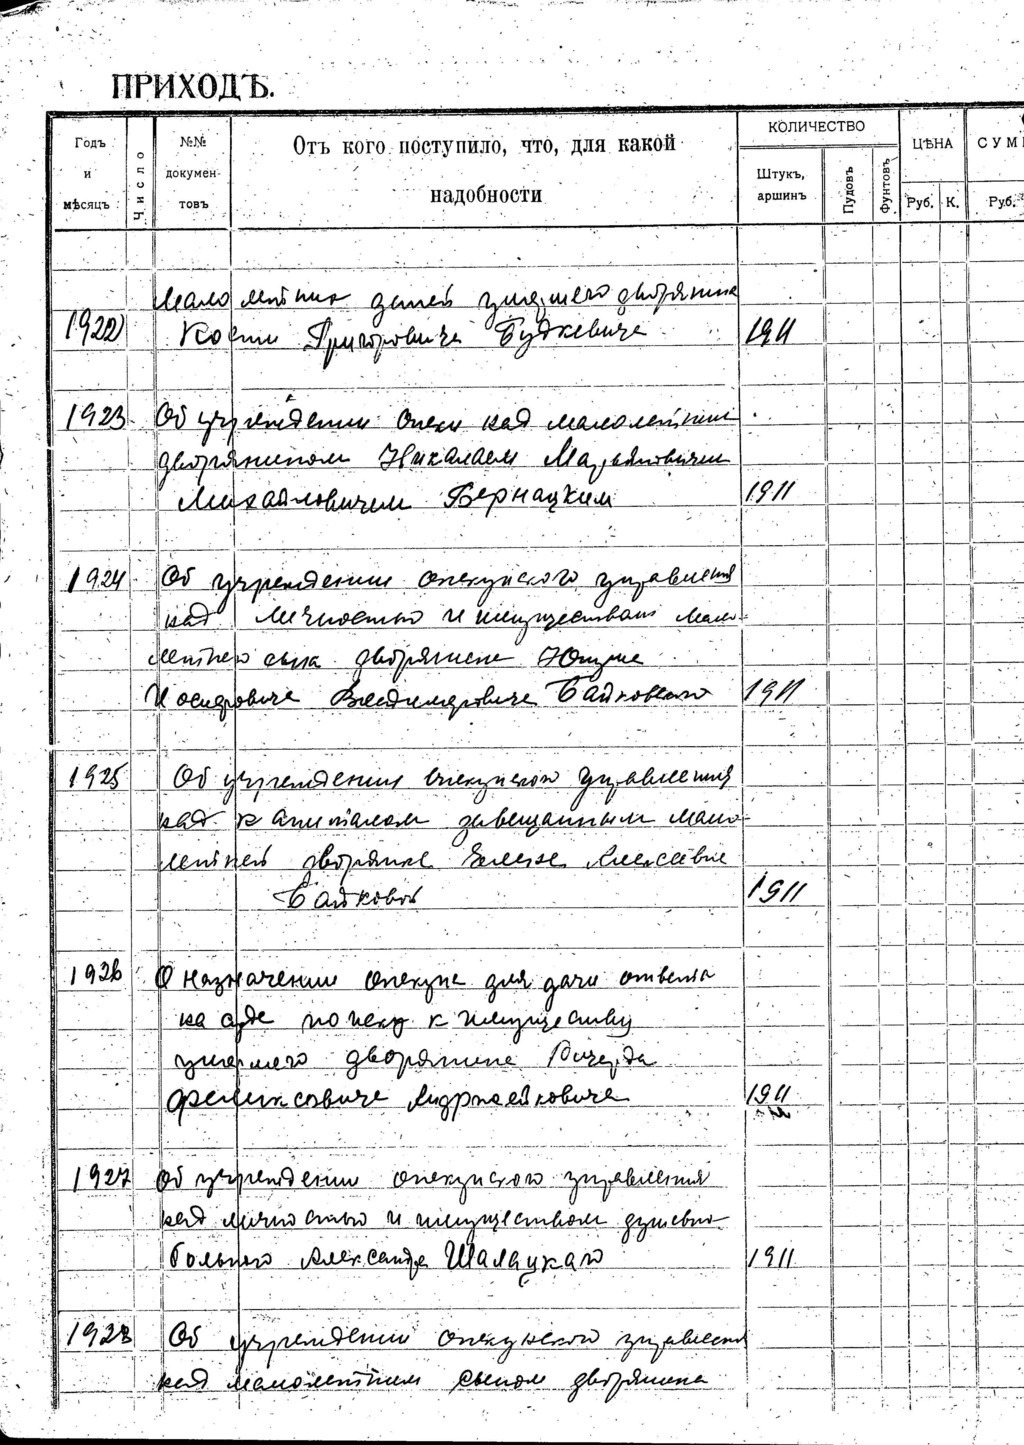 ПРИХОДЪ.
Годъ и мѣсяцъ
Число
№№ документовъ
Отъ кого поступило, что, для какой надобности
КОЛИЧЕСТВО
Штукъ, аршинъ
Пудовъ
Фунтовъ
ЦѢНА
Руб. К.
СУМ
Руб.
Малолетних детей умершего дворянина
1922 Кости Григоровича Будкевича 1911
1923 Об учреждении опеки над малолетним
дворянином Николаем Марьяновичем
Михайловичем Бернацким 1911
1924 Об учреждении опекунского управления
над личностью и имуществом мало-
летнего сына дворянина
Иосифовича Владимировича Байковского 1911
1925 Об учреждении опекунского управления
над капиталом завещанным мало-
летней дворянке Елене Алексеевне
Байковой 1911
1926 О назначении опекуна для дачи ответа
на суде по иску к имуществу
умершего дворянина Ричарда
Феликсовича Андржейковича 1911
1927 Об учреждении опекунского управления
над личностью и имуществом душевно
больного Александра Шалацкаго 1911
1928 Об учреждении опекунского управления
над малолетним сыном дворянина